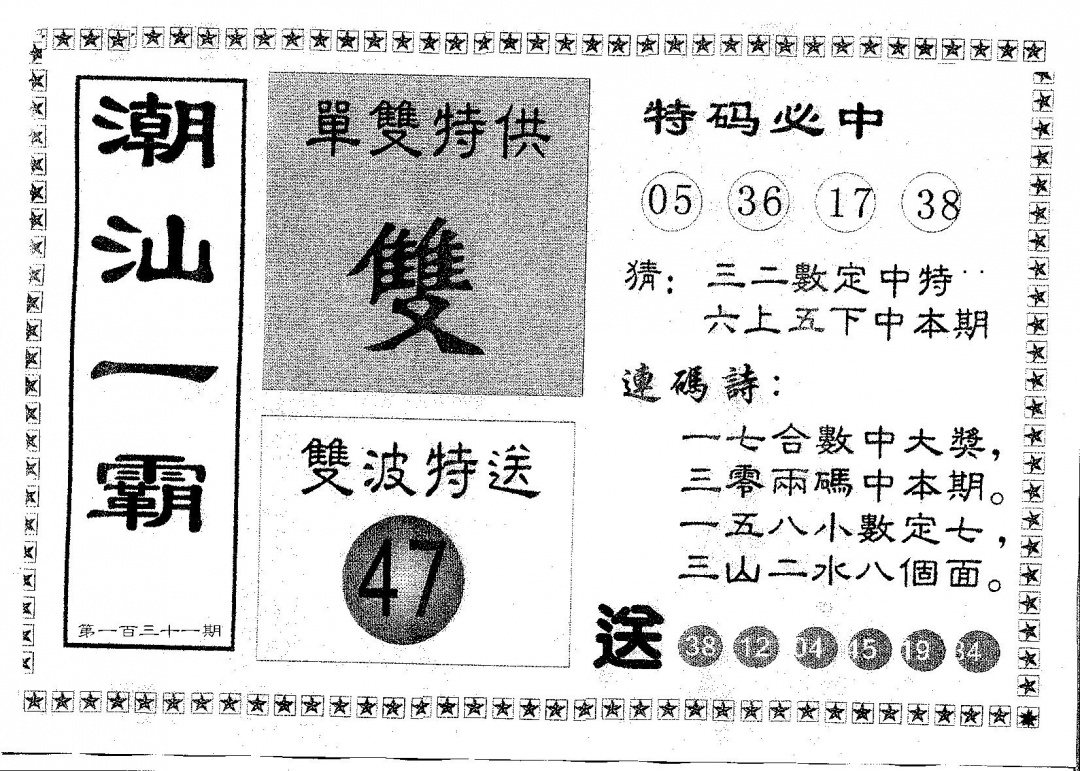 潮汕一霸
第一百三十一期
單雙特供
雙
雙波特送
47
特码必中
05 36 17 38
猜：三二數定中特
六上五下中本期
連碼詩：
一七合數中大獎，
三零兩碼中本期。
一五八小數定七，
三山二水八個面。
送 38 12 04 45 19 34